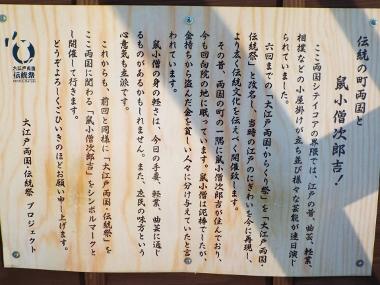 大江戸両国
伝統祭
伝統の町両国と
鼠小僧次郎吉！
ここ両国シティコアの界隈では、江戸の昔、曲芸、軽業、
相撲などの小屋掛けが立ち並び様々な芸能が連日演じ
られていました。
六回までの「大江戸両国からくり祭」を「大江戸両国・
伝統祭」と改名し、当時の江戸のにぎわいを今に再現し、
より広く伝統文化も伝えべく開催致します。
その昔、両国の町の一隅に鼠小僧次郎吉が住んでおり、
今も回向院の地に眠っています。鼠小僧は泥棒でしたが、
金持ちから盗んだ金を貧しい人々に分け与えていたと言
われています。
鼠小僧の身の軽さは、今回の手妻、軽業、曲芸に通じ
るものがあるかもしれません。また、庶民の味方という
心意気も立派です。
これからも、前回と同様に「大江戸両国・伝統祭」を
ここ両国に関わる「鼠小僧次郎吉」をシンボルマークと
し開催して行きます。
どうぞよろしくごひいきのほどお願い申し上げます。
大江戸両国・伝統祭 プロジェクト